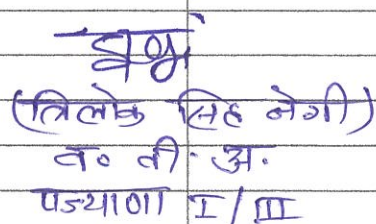 (त्रिलोक सिंह नेगी)
व० वी. अ.
पज्याणा I/III